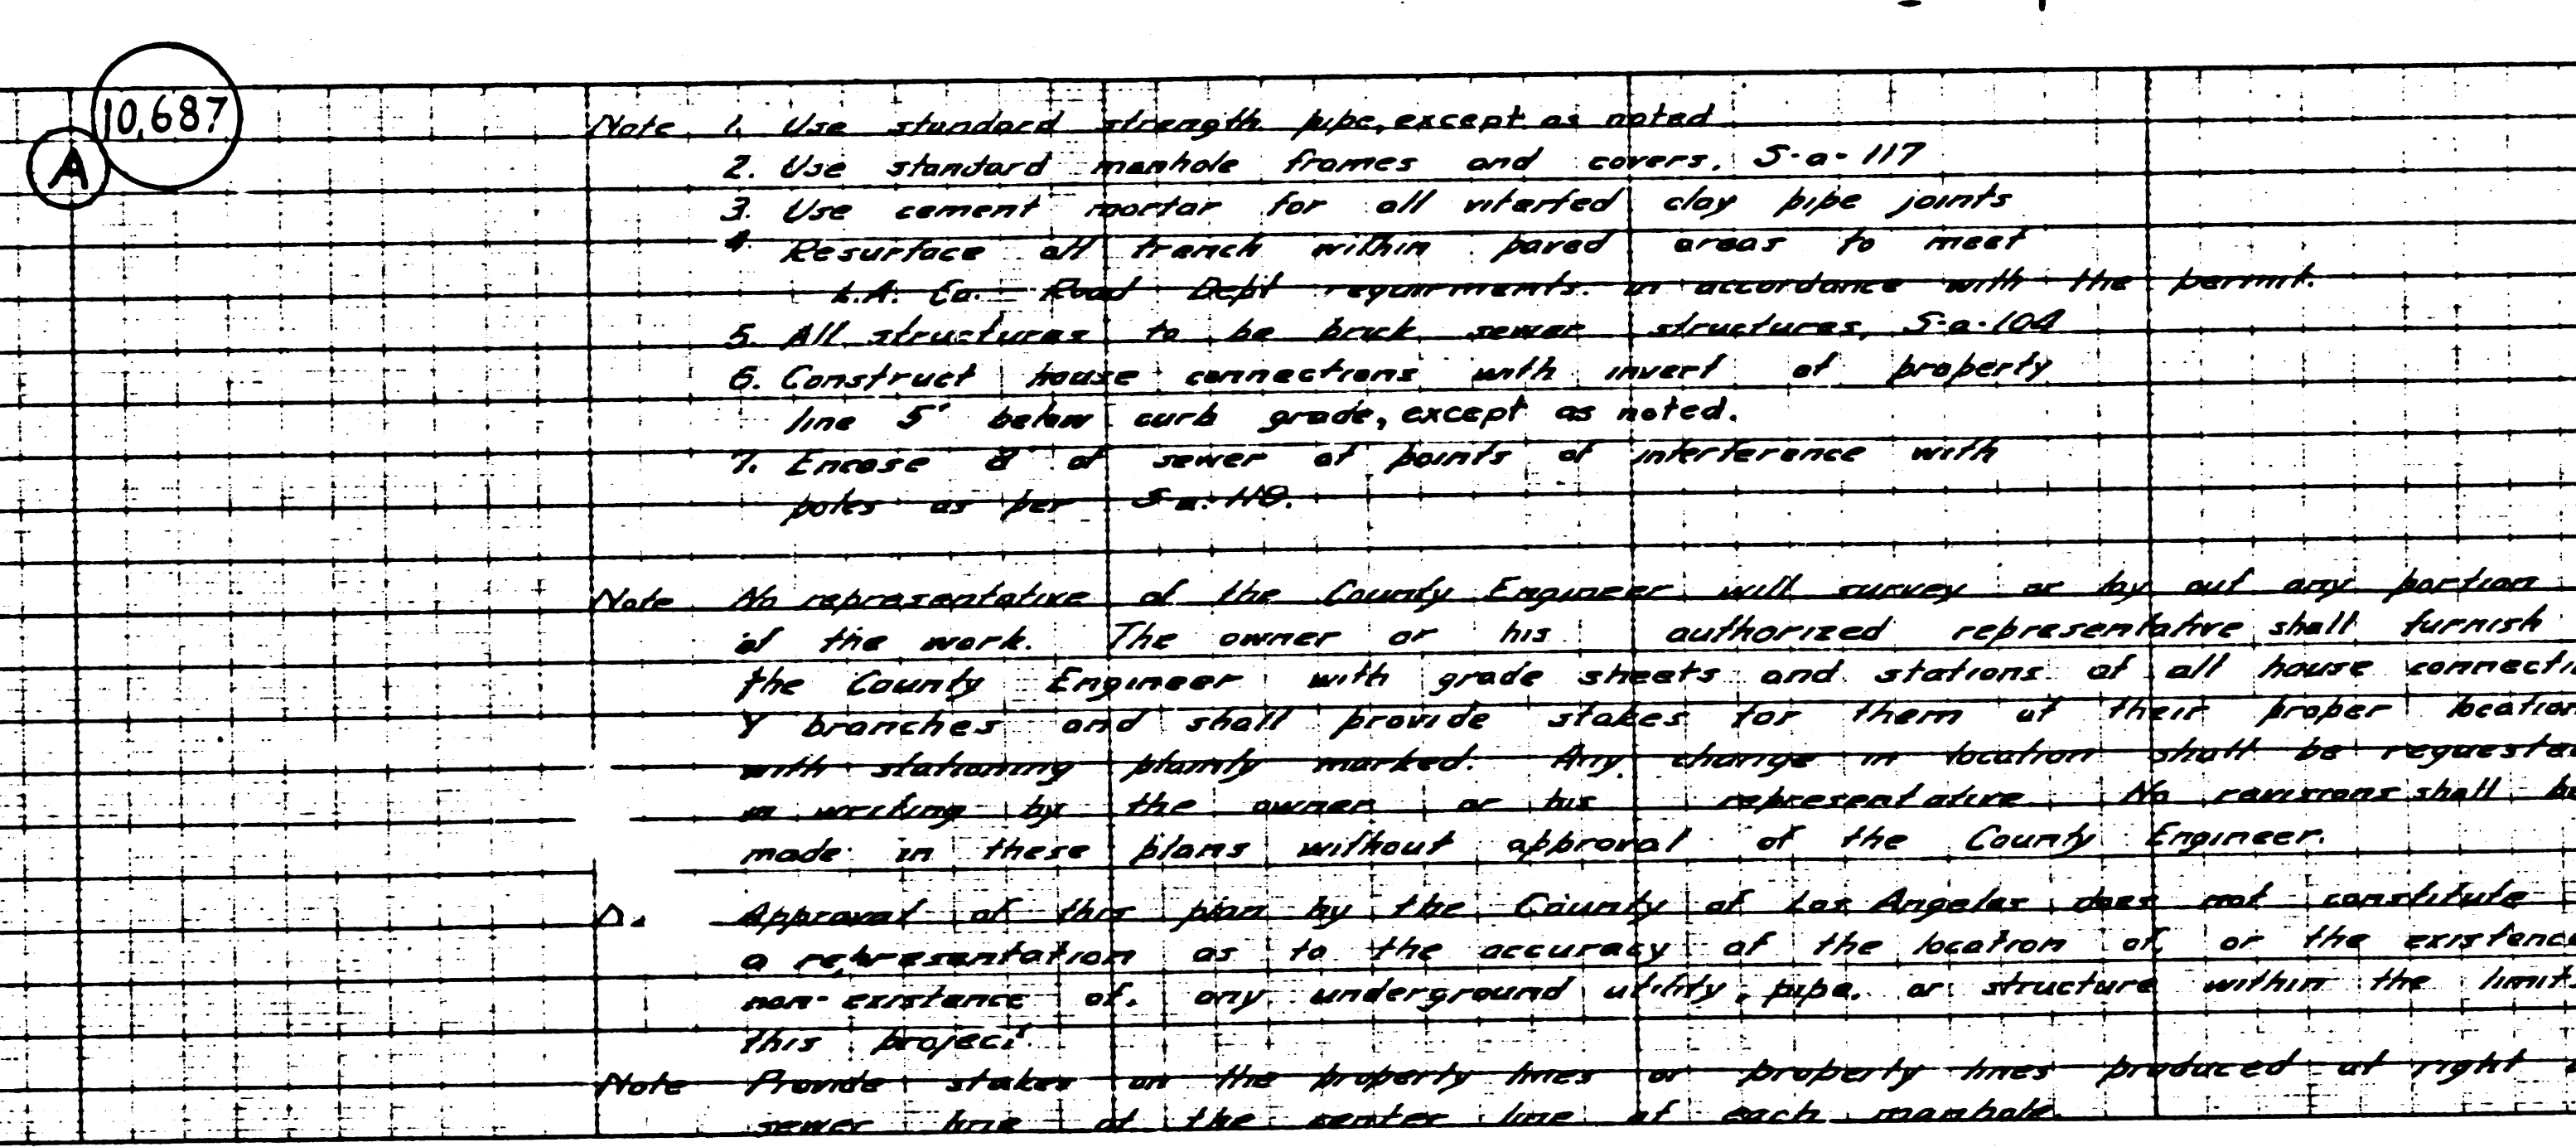 10,687
A
Note 1. Use standard strength pipe, except as noted
2. Use standard manhole frames and covers, S-a-117
3. Use cement mortar for all viterfed clay pipe joints
4 Resurface all trench within paved areas to meet
L.A. Co. Road Dept requirments. in accordance with the permit.
5. All structures to be brick sewer structures, S-a-104
6. Construct house connections with invert at property
line 5' below curb grade, except as noted.
7. Encase of sewer at points of interference with
poles as per
Note No representative of the County Engineer will survey or lay out any portion
of the work. The owner or his authorized representative shall furnish
the County Engineer with grade sheets and stations of all house connecti
Y branches and shall provide stakes for them at their proper location
with stationing plainly marked. Any change in location shall be requested
in writing by the owner or his representative No revisions shall be
made in these plans without approval of the County Engineer.
Approval of this plan by the County of Los Angeles does not constitute
a representation as to the accuracy of the location of, or the existence
non-existance of, any underground utility, pipe, or structure within the limits
this project.
Note Provide stakes on the property lines or property lines produced at right
sewer line at the center line of each manhole.